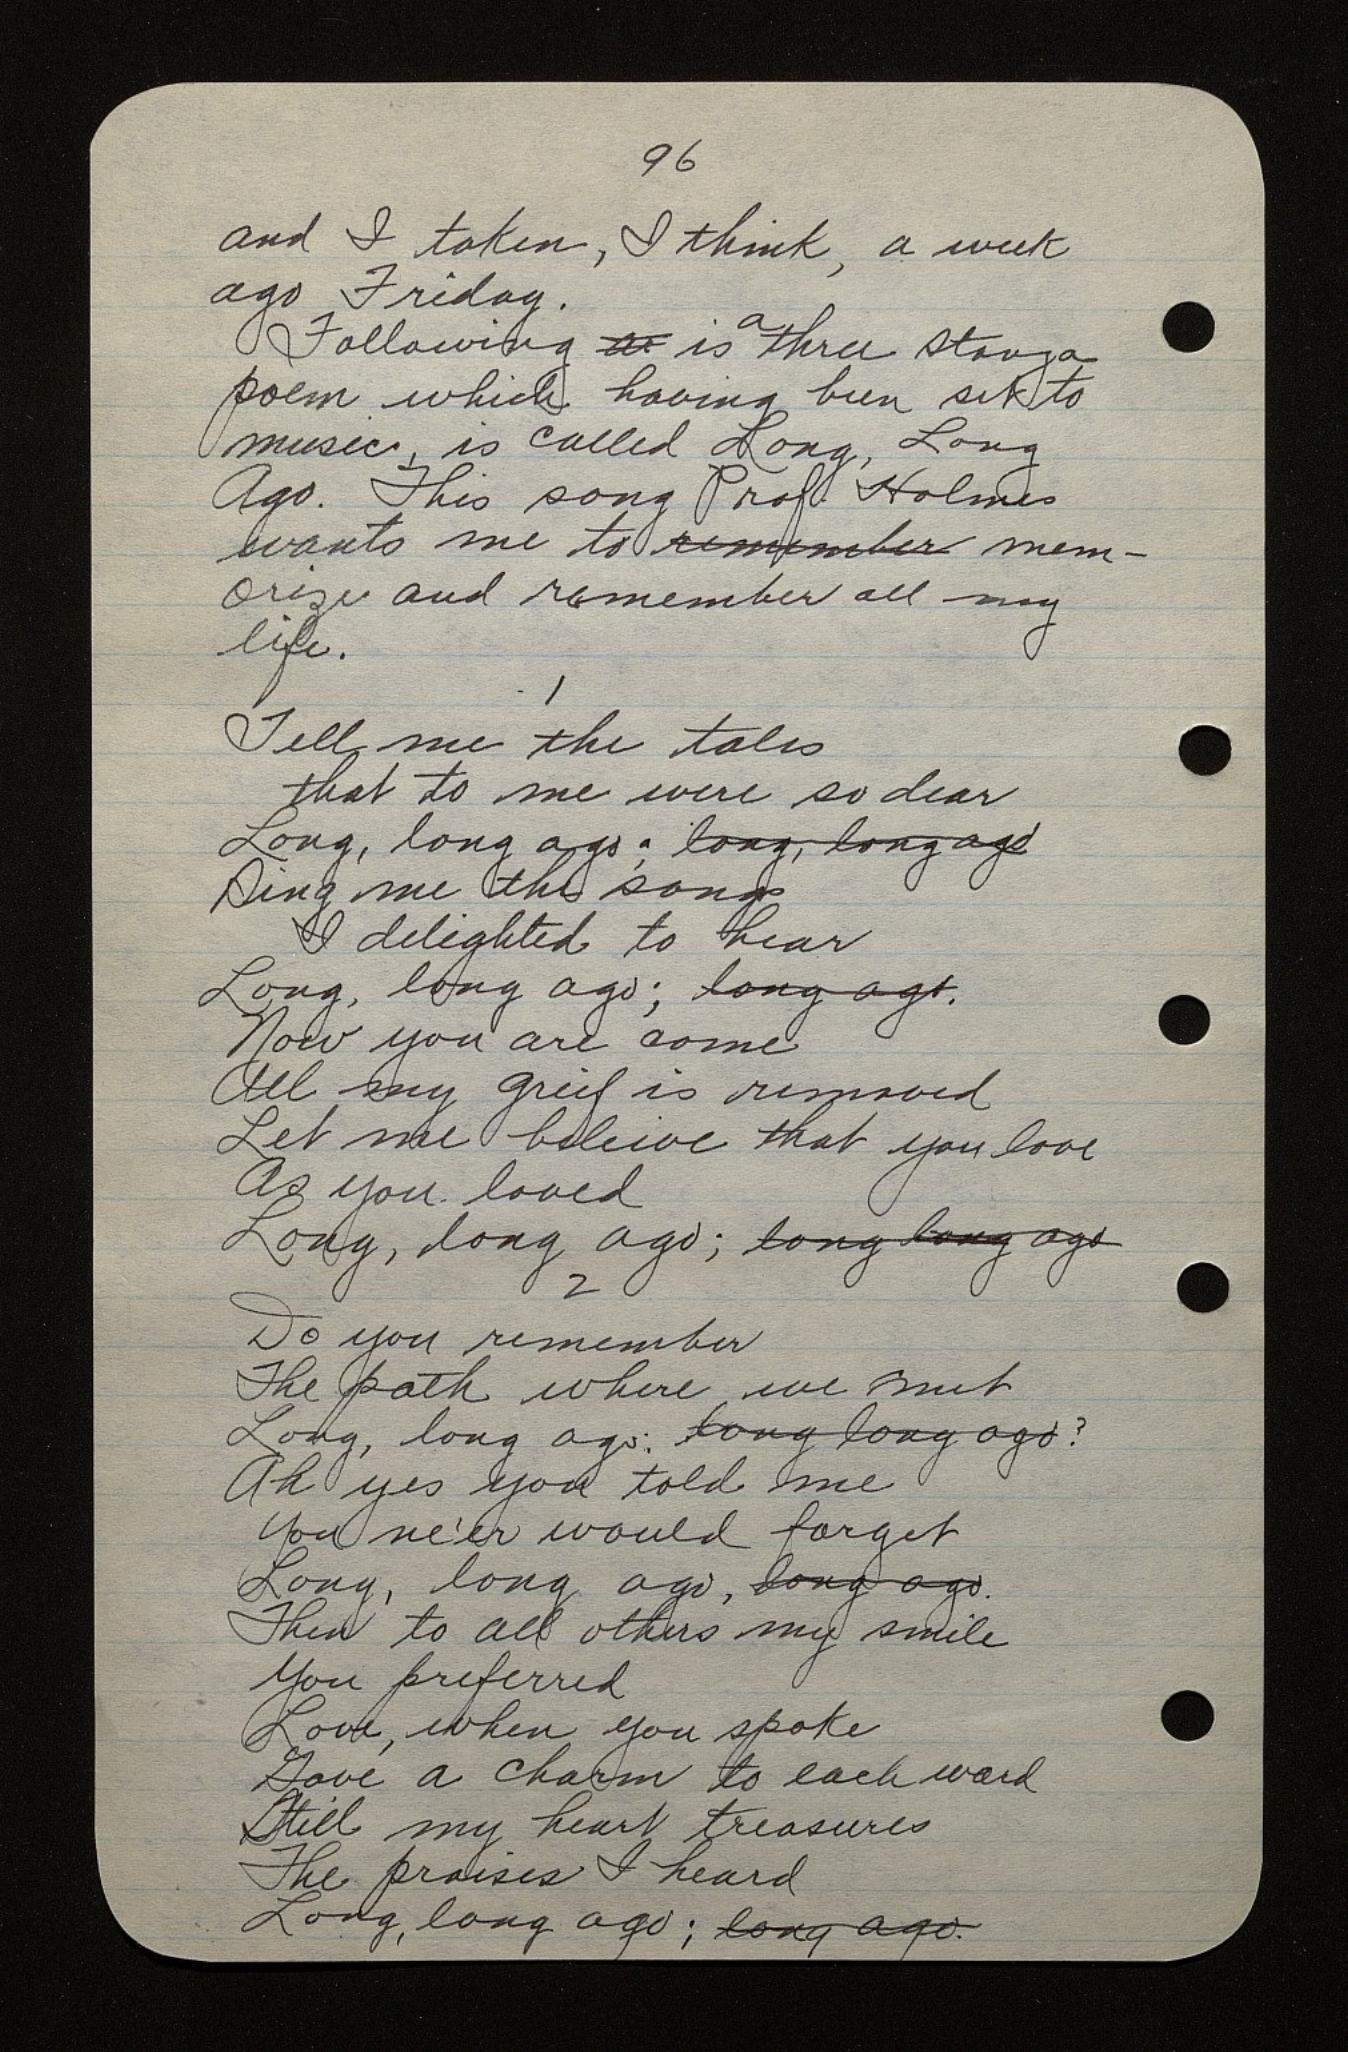 96
and I taken, I think, a week
ago Friday.
Following a is a three stanza
poem which having been set to
music, is called Long, Long
Ago. This song Prof. Holmes
wants me to remember mem-
orize and remember all my
life.
1
Tell me the tales
that to me were so dear
Long, long ago; long, long ago
Sing me the songs
I delighted to hear
Long, long ago; long ago.
Now you are come
All my grief is removed
Let me beleive that you love
As you loved
Long, long ago; long long ago
2
Do you remember
The path where we met
Long, long ago: long long ago?
Ah yes you told me
You ne'er would forget
Long, long ago, long ago.
Then to all others my smile
You preferred
Love, when you spoke
Gave a charm to each word
Still my heart treasures
The praises I heard
Long, long ago; long ago.